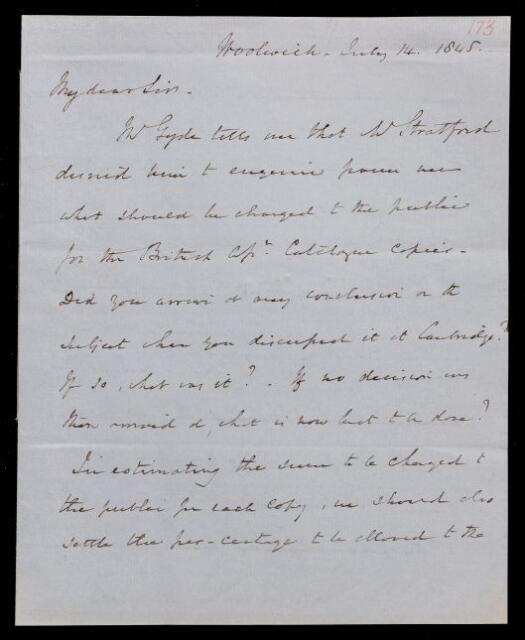 173
Woolwich - July 14. 1845.
My dear Sir -
Mr Gyde tells me that Mr Stratford
desired him to enquire from me
what should be charged to the public
for the British Assn. Catalogue copies -
Did you arrive at any conclusion on the
subject when you discussed it at Cambridge?
If so, what was it? - If no decision was
then arrived at, what is now best to be done?
In estimating the sum to be charged to
the public for each copy, we should also
settle the per-centage to be allowed to the